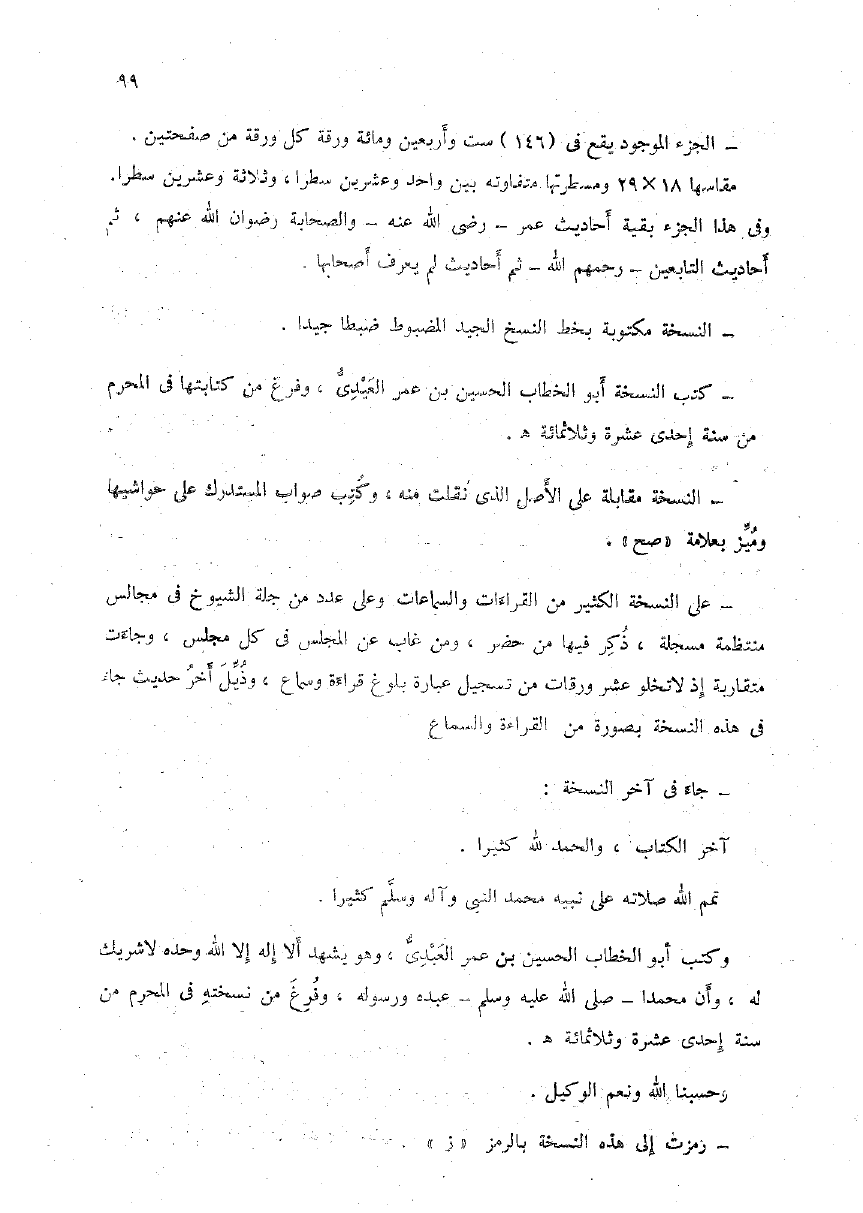 ٩٩
ـ الجزء الموجود يقع فى (١٤٦) ست وأربعين ومائة ورقة كل ورقة من صفحتين .
مقاسها ١٨×٢٩ ومسطرتها متفاوته بين واحد وعشرين سطرا ، وثلاثة وعشرين سطرا.
وفى هذا الجزء بقية أحاديث عمر ـ رضى الله عنه ـ والصحابة رضوان الله عنهم ، ثم
أحاديث التابعين ـ رحمهم الله ـ ثم أحاديث لم يعرف أصحابها .
ـ النسخة مكتوبة بخط النسخ الجيد المضبوط ضبطا جيدا .
ـ كتب النسخة أبو الخطاب الحسين بن عمر العَبْدِىُّ ، وفرغ من كتابتها فى المحرم
من سنة إحدى عشرة وثلاثمائة هـ .
ـ النسخة مقابلة على الأصل الذى نُقلت منه ، وكُتِب صواب المستدرك على حواشيها
ومُيِّز بعلامة «صح» .
ـ على النسخة الكثير من القراءات والسماعات وعلى عدد من جلة الشيوخ فى مجالس
منتظمة مسجلة ، ذُكِر فيها من حضر ، ومن غاب عن المجلس فى كل مجلس ، وجاءت
متقاربة إذ لاتخلو عشر ورقات من تسجيل عبارة بلوغ قراءة وسماع ، وذُيِّلَ أَخرُ حديث جاء
فى هذه النسخة بصورة من القراءة والسماع
ـ جاء فى آخر النسخة :
آخر الكتاب ، والحمد لله كثيرا .
تمم الله صلاته على نبيه محمد النبى وآله وسلَّم كثيرا .
وكتب أبو الخطاب الحسين بن عمر العَبْدِىُّ ، وهو يشهد ألا إله إلا الله وحده لاشريك
له ، وأن محمدا ـ صلى الله عليه وسلم ـ عبده ورسوله ، وفُرِغَ من نسختهِ فى المحرم من
سنة إحدى عشرة وثلاثمائة هـ .
وحسبنا الله ونعم الوكيل .
ـ رمزت إلى هذه النسخة بالرمز «ز» .